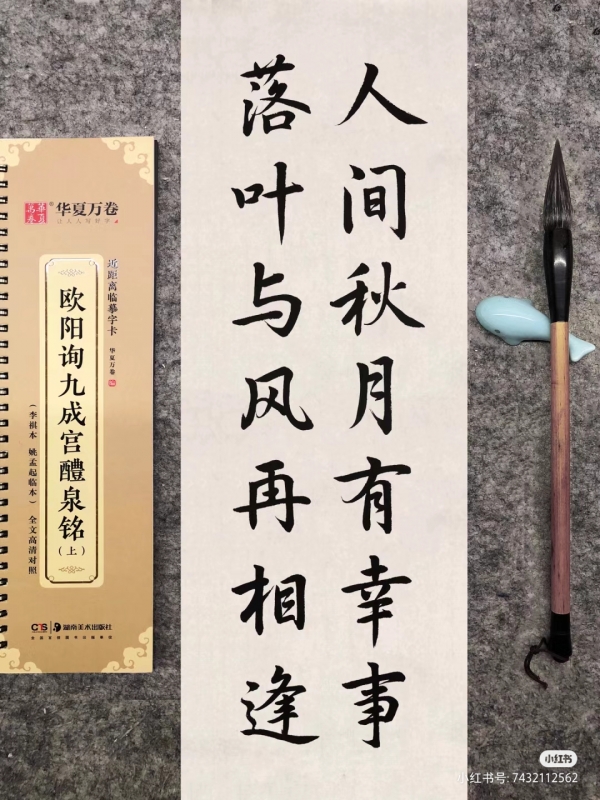 人间秋月有幸事
落叶与风再相逢
华夏万卷
让人人写好字
近距离临摹字卡
华夏万卷
欧阳询九成宫醴泉铭
(上)
(李祺本 姚孟起临本) 全文高清对照
CTS
湖南美术出版社
全国百佳图书出版单位
小红书
小红书号: 7432112562